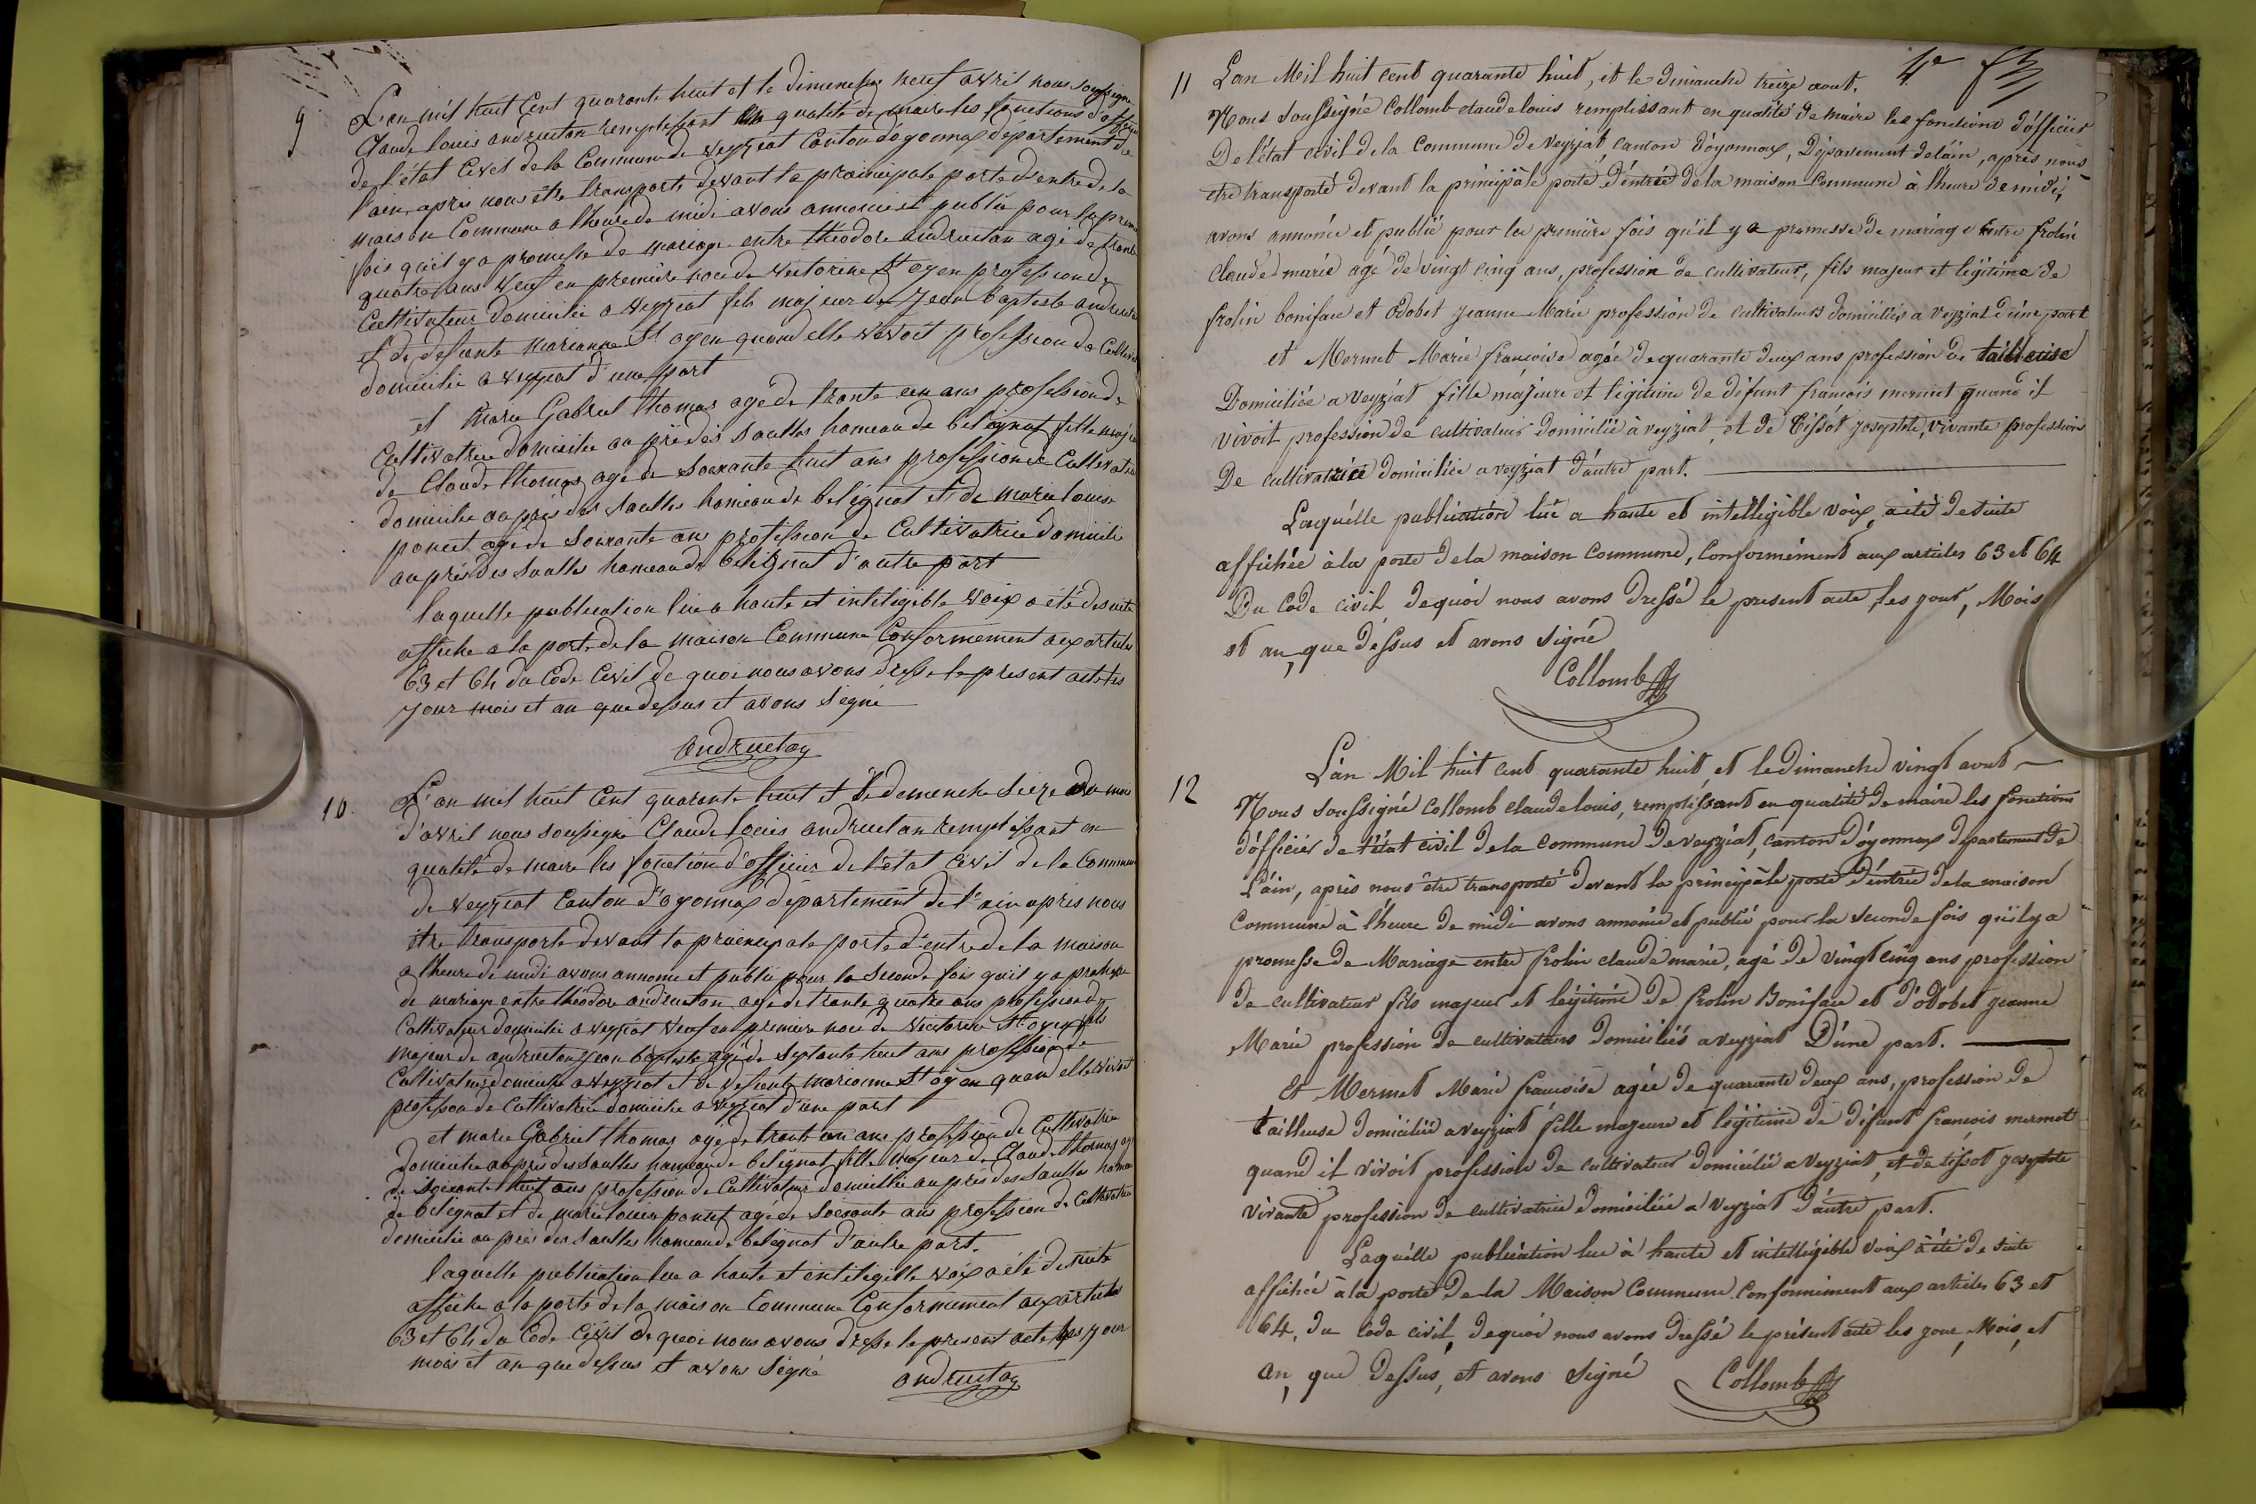 9
L'an mil huit Cent quarante huit et le dimenche neuf avril nous soussigné
Claude louis andruetan remplissant en qualité de maire les fonctions d'officier
de l'état Civil de la Commune de veyziat Canton d'oyonnax département de
l'ain, apres nous etre transporte devant la principale porte d'entre de la
maison Commune a lheure de midi avons annonce et publie pour la premiere
fois qu'il y a promesse de mariage entre théodore andruetan agé de trente
quatre ans veuf en premiere noce de victorine St oyen profession de
Cultivateur domicilie a veyziat fils majeur de jean baptiste andruetan
et de defunte marianne St oyen quand elle vivoit profession de Cultivatrice
domicilie a veyziat d'une part
et marie Gabriel thomas agé de trente un ans profession de
Cultivatrice domicilie au prés des Saulles hameau de belignat fille majeure
de Claude thomas age de soixante huit ans profession de Cultivateur
domicilie au prés des Saulles hameau de belignat et de marie louise
poncet agé de soixante ans profession de Cultivatrice domicilie
au prés des Saulles hameau de belignat d'autre part
laquelle publication lue a haute et inteligible voix a été de suite
affiche a la porte de la maison Commune Conformement aux articles
63 et 64 du Code Civil de quoi nous avons dresse le present acte les
jour mois et an que dessus et avons signé
andruetan
10.
L'an mil huit Cent quarante huit et le demenche seize du mois
d'avril nous soussigne Claude louis andruetan remplissant en
qualité de maire les fonction d'officier de l'état Civil de la Commune
de veyziat Canton d'oyonnax département de l'ain apres nous
être transporte devant la principale porte d'entre de la maison
a lheure de midi avons annonce et publie pour la seconde fois quil y a promesse
de mariage entre théodore andruetan agé de trente quatre ans profession de
Cultivateur domicilie a veyziat veuf en premiere noce de victorine St oyen fils
majeur de andruetan jean baptiste agé de septante huit ans profession de
Cultivateur domicilie a veyziat et de defunte marianne St oyen quan elle vivoit
profession de Cultivatrice domicilie a veyziat d'une part
et marie Gabriel thomas agé de trente un ans profession de Cultivatrice
domicilie au prés des Saulles hameau de belignat fille majeur de Claude thomas agé
de soixante huit ans profession de Cultivateur domicilie au prés des Saulles hameau
de belignat et de marie louise poncet agé de soixante ans profession de Cultivatrice
domicilie au prés des Saulles hameau de belignat d'autre part.
laquelle publication lue a haute et inteligible voix a été de suite
affiche a la porte de la maison Commune Conformement aux articles
63 et 64 du Code Civil de quoi nous avons dresse le present acte les jour
mois et an que dessus et avons signé
andruetan
4e
11
L'an Mil huit cent quarante huit, et le dimanche treize aout.
Nous soussigné Collomb claude louis remplissant en qualité de maire les fonctions d'officier
De l'état civil de la commune de veyziat canton d'oyonnax, Département de l'ain, après nous
etre transporté devant la principale porte d'entrée de la maison commune à l'heure de midi,
avons annoncé et publié pour la première fois qu'il y a promesse de mariage entre frolin
claude marie agé de vingt cinq ans, profession de cultivateur, fils majeur et legitime de
frolin boniface et Odobet jeanne Marie profession de cultivateurs domiciliés a veyziat d'une part
et Mermet Marie francoise agée de quarante deux ans profession de tailleuse
Domiciliée a veyziat fille majeure et légitime de défunt francois mermet quand il
vivoit profession de cultivateur domicilié à veyziat, et de tissot josephte, vivante profession
De cultivatrice domiciliée a veyziat d'autre part.
Laquélle publication lue a haute et intelligible voix, a été de suite
affichée à la porte de la maison commune, conformément aux articles 63 et 64
Du Code civil, dequoi nous avons dressé le present acte, les jour, Mois
et an, que dessus et avons signé
Collomb
12
L'an Mil huit cent quarante huit et le dimanche vingt aout
Nous soussigné collomb claude louis, remplissant en qualité de maire les fonctions
d'officier de l'état civil de la commune de veyziat, canton d'oyonnax departement de
L'ain, après nous être transporté devant la principale porte d'entrée de la maison
commune à l'heure de midi avons annoncé et publié pour la seconde fois qu'il y a
promesse de Mariage entre frolin claude marie, agé de vingt cinq ans profession
de cultivateur fils majeur et légitime de frolin Boniface et d'odobet jeanne
Marie profession de cultivateurs domiciliés a veyziat D'une part.
Et Mermet Marie francoise agée de quarante deux ans, profession de
tailleuse domiciliée a veyziat fille majeure et légitime de défunt francois mermet
quand il vivoit profession de cultivateur domicilié a veyziat, et de tissot josephte
vivante profession de cultivatrice domiciliée a veyziat d'autre part.
Laquélle publication lue à haute et intelligible voix a été de suite
affichée à la porte De la Maison Commune conformément aux articles 63 et
64, du code civil, dequoi nous avons dressé le présent acte les jour, Mois, et
an, que Dessus, et avons signé
Collomb